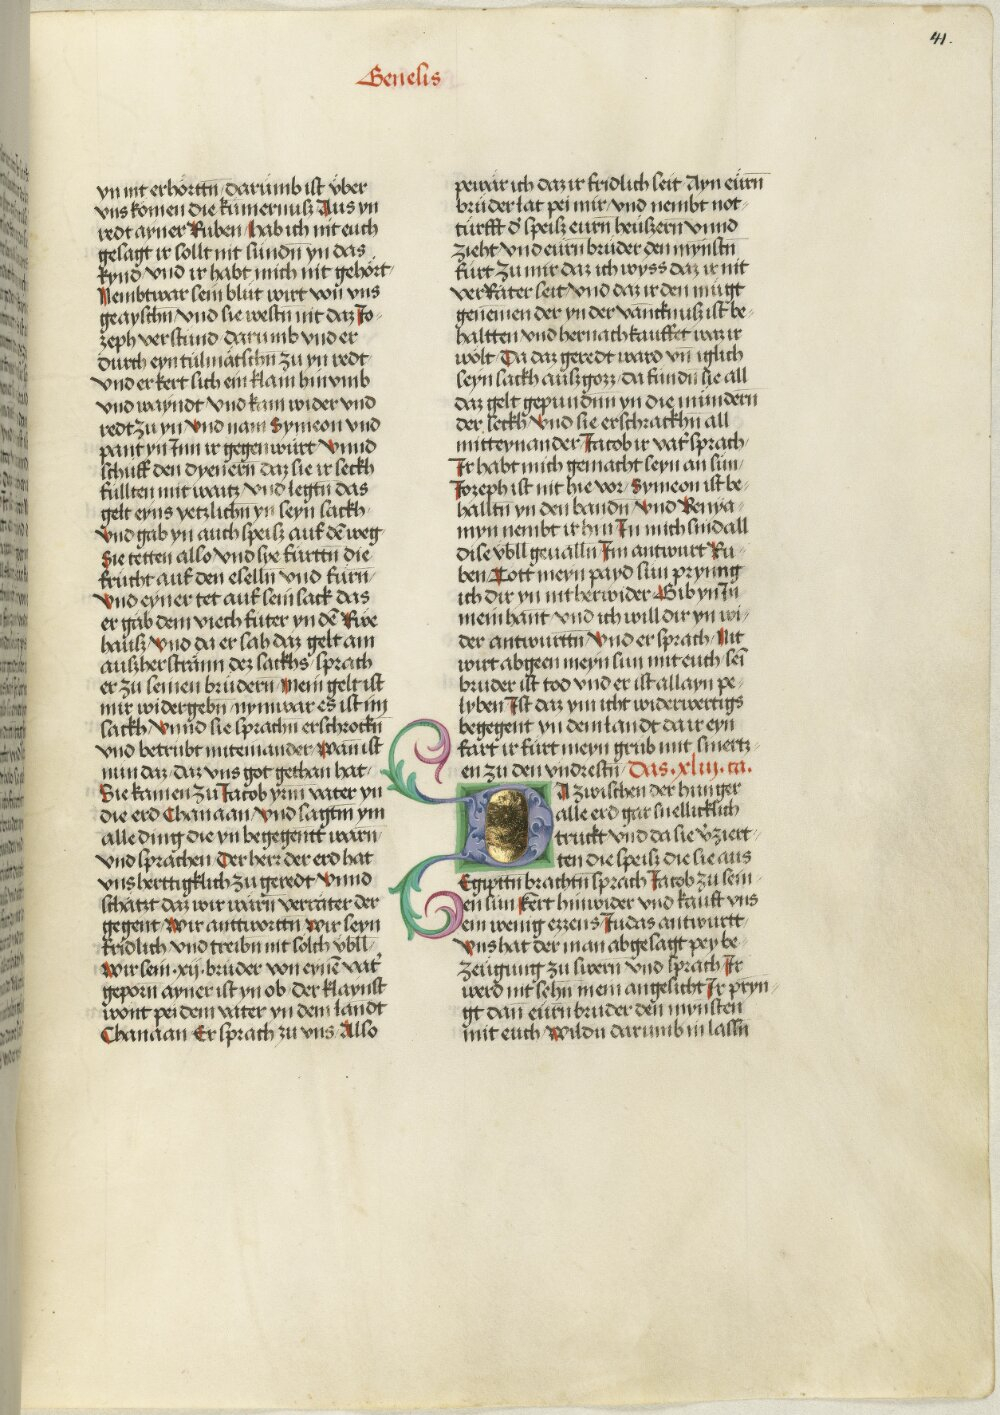 41.
Genesis
yn nit erhörttn / darumb ist vber
vns komen die kümernusz Aus yn
redt ayner Ruben / hab ich nit euch
gesagt ir sollt nit sundn yn das
kynd / vnd ir habt mich nit gehört /
Nembtwar sein blut wirt von vns
geayschn / vnd sie westn nit daz Jo-
zeph verstund / darumb vnd er
durch eyn tulmätschn zu yn redt
vnd er kert sich ein klain hin vmb
vnd wayndt / vnd kam wider vnd
redt zu yn / Vnd nam Symeon vnd
pant yn Inn ir gegenwürt / Vnnd
schuff den dyenern daz sie ir seckh
füllten mit waitz / vnd legtn das
gelt eyns yetzlichn yn seyn sackh /
Vnd gab yn auch speisz auf dē weg
Sie tetten also / vnd sye fürttn die
frücht auf den eselln / vnd furn /
Vnd eyner tet auf sein sack das
er gab dem viech futer yn dē Rwe
hausz / Vnd da er sah daz gelt am
auszherstrann dez sackhs / sprach
er zu seinen brudern / Mein gelt ist
mir widergebn / nymwar es ist im
sackh / Vnnd sie sprachn erschrockn
vnd betrubt miteinander / Wan ist
nun daz / daz vns got gethan hat /
Sie kamen zu Jacob yrm vater yn
die erd Chanaan / Vnd sagtm ym
alle ding die yn begegent warn /
vnd sprachen / Der herr der erd hat
vns herttigklich zu geredt / Vnnd
schätzt daz wir warn verräter der
gegent / Wir anttworttn / Wir seyn
fridlich vnd treibn nit solch vbll /
Wir sein .xij. bruder von eynē vat̄
geporn ayner ist yn ob / der klaynst
wont pei dem vater yn dem landt
Chanaan / Er sprach zu vns / Also
pewär ich daz ir fridlich seit / Ayn eurn
bruder lat pei mir / vnd nembt not-
türfft d̄ speisz eurn heuszern / vnnd
zieht / vnd eurn bruder den mynstn
fürt zu mir daz ich wyss daz ir nit
verräter seit / vnd daz ir den mugt
genemen der yn der väncknusz ist be-
haltten / vnd hernach kauffet waz ir
wölt / Da daz geredt ward vn̄ iglich
seyn sackh auszgozz / da fundn sie all
daz gelt gepundnn yn die mündern
der seckh / Vnd sie erschrackhn all
mitteynander / Jacob ir vat̄ sprach /
Ir habt mich gemacht seyn an sun /
Jozeph ist nit hie vor / Symeon ist be-
halltn yn den bandn / Vnd Benya-
myn nembt ir hin / In mich sind all
dise vbll geualln / Im antwurt Ru-
ben / Tott meyn payd sun prynng
ich dir yn nit herwider / Gib yn In
mein hant / vnd ich will dir yn wi-
der antwurttn / Vnd er sprach / Nit
wirt abgeen meyn sun mit euch / sein
bruder ist tod vnd er ist allayn pe-
lyben / Ist daz ym icht widerwertigs
begegent yn dem landt da ir eyn
fart ir fürt meyn grab mit smertz-
en zu den vndrestn / Das .xliij. ca.
DA zwischen der hunger
alle erd gar snellicklich
truckt / vnd da sie v̄ziert-
ten die speisz die sie aus
Egipttn brachtn sprach Jacob zu sein-
en sun / Kert hinwider vnd kaufft vns
ein wenig ezzens / Judas antwurtt /
Vns hat der man abgesagt pey be-
zeugung zu swern / vnd sprach / Ir
werd nit sehn mein angesicht / Ir pryn-
gt dan eurn bruder den mynsten
mit euch / Wildu darumb in lassn